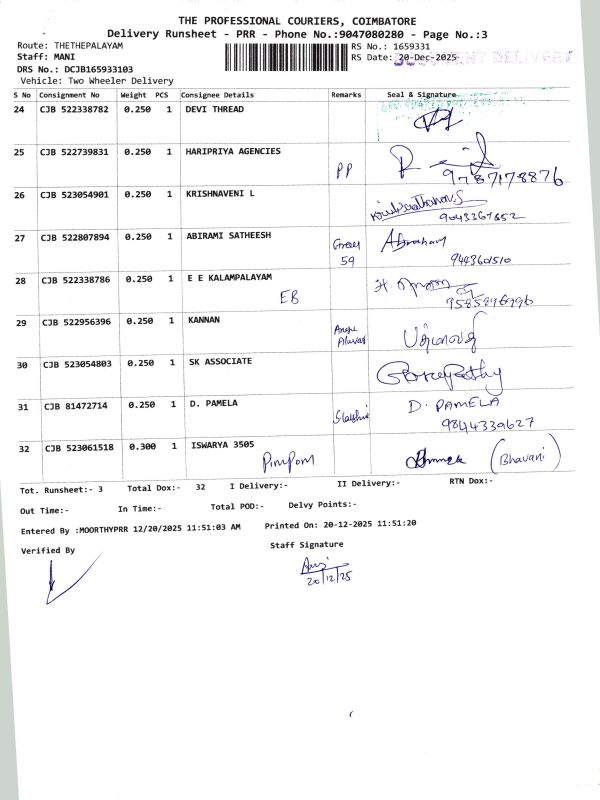 THE PROFESSIONAL COURIERS, COIMBATORE
Delivery Runsheet - PRR - Phone No.:9047080280 - Page No.:3
Route: THETHEPALAYAM
Staff: MANI
DRS No.: DCJB165933103
Vehicle: Two Wheeler Delivery
RS No.: 1659331
RS Date: 20-Dec-2025
DELIVERY
S No Consignment No Weight PCS Consignee Details Remarks Seal & Signature
24 CJB 522338782 0.250 1 DEVI THREAD
25 CJB 522739831 0.250 1 HARIPRIYA AGENCIES PP 9787178876
26 CJB 523054901 0.250 1 KRISHNAVENI L
27 CJB 522807894 0.250 1 ABIRAMI SATHEESH 59 Abraham
28 CJB 522338786 0.250 1 E E KALAMPALAYAM
EB
29 CJB 522956396 0.250 1 KANNAN
30 CJB 523054803 0.250 1 SK ASSOCIATE
31 CJB 81472714 0.250 1 D. PAMELA D. PAMELA
9844339627
32 CJB 523061518 0.300 1 ISWARYA 3505 (Bhavani)
PimPom
Tot. Runsheet:- 3 Total Dox:- 32 I Delivery:- II Delivery:- RTN Dox:-
Out Time:- In Time:- Total POD:- Delvy Points:-
Entered By :MOORTHYPRR 12/20/2025 11:51:03 AM Printed On: 20-12-2025 11:51:20
Verified By Staff Signature
20/12/25